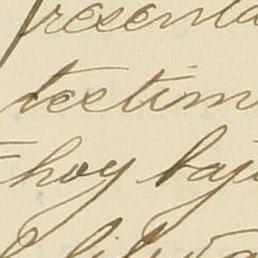 resenta
testim
hoy baj